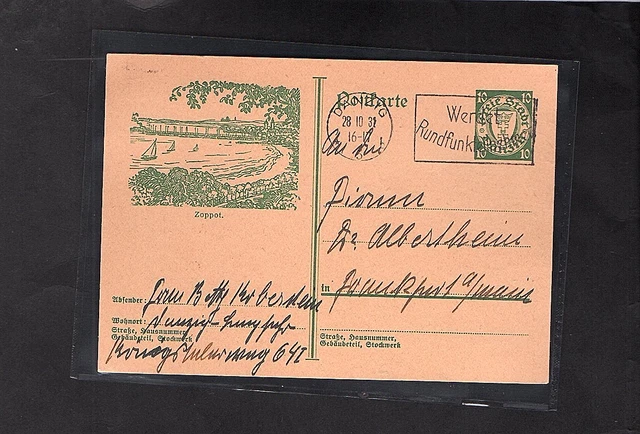 Postkarte
DANZIG
28 10 32
16-17
Werdet
Rundfunk
Freie Stadt
10 10
10 10
Zoppot.
An die
Firma
Dr. Albertheim
in Frankfurt a/Main
Straße, Hausnummer,
Gebäudeteil, Stockwerk
Absender: Frau Betty Koberstein
Wohnort: Danzig-Langfuhr
Straße, Hausnummer,
Gebäudeteil, Stockwerk
Königstalerweg 64